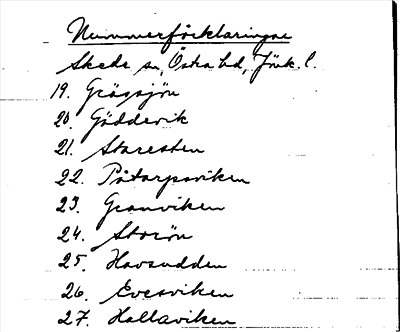 Nummerförklaringar
Skede sn, Östra hd, Jönk. l.
19. Grässjön
20. Gäddevik
21. Staresten
22. Påtarpsviken
23. Granviken
24. Storön
25. Havsudden
26. Evesviken
27. Hallaviken